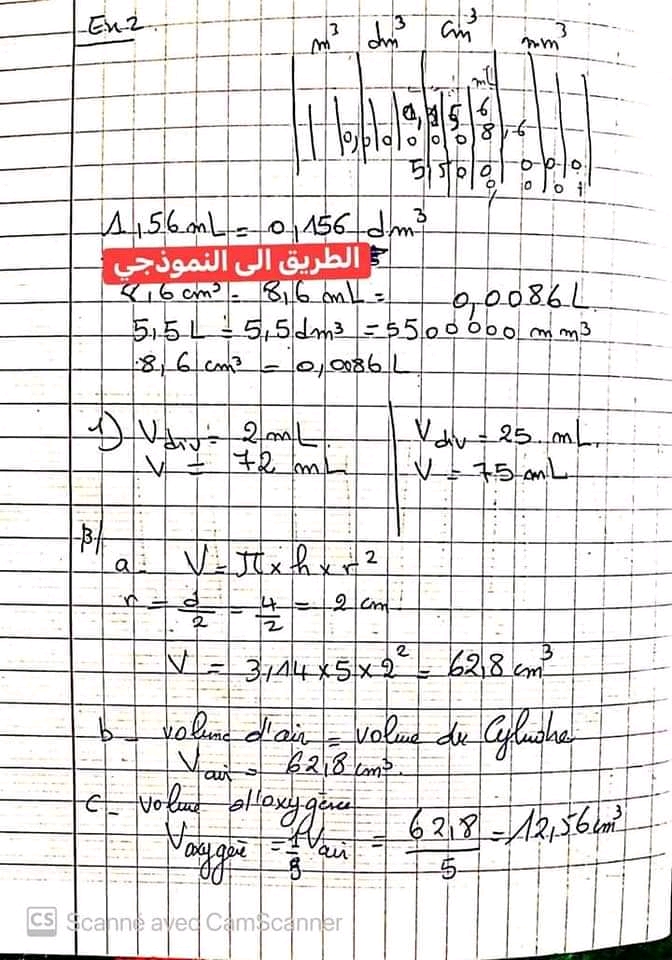 Ex 2
m³ dm³ cm³ mm³
mL
0, 1 5 6
0, 0 0 0 0 0 8, 6
5, 5 0 0 0 0 0
0, 0 0 1
1,56 mL = 0,156 dm³
الطريق الى النموذجي
8,6 cm³ = 8,6 mL = 0,0086 L
5,5 L = 5,5 dm³ = 5500000 mm³
8,6 cm³ = 0,0086 L
1) Vdiv = 2 mL. Vdiv = 25. mL.
V = 72 mL V = 75 mL
β/
a- V = π x h x r²
r = d/2 = 4/2 = 2 cm
V = 3,14 x 5 x 2² = 62,8 cm³
b- volume d'air = volume du Cylindre
Vair = 62,8 cm³.
c- volume d'oxygène
Voxygène = 1/5 Vair = 62,8/5 = 12,56 cm³
CS Scanné avec CamScanner